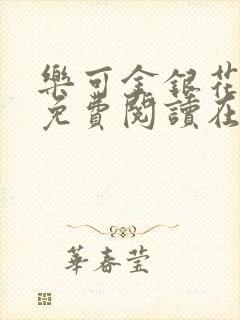 樂可金銀花
免費閱讀在
華春莹